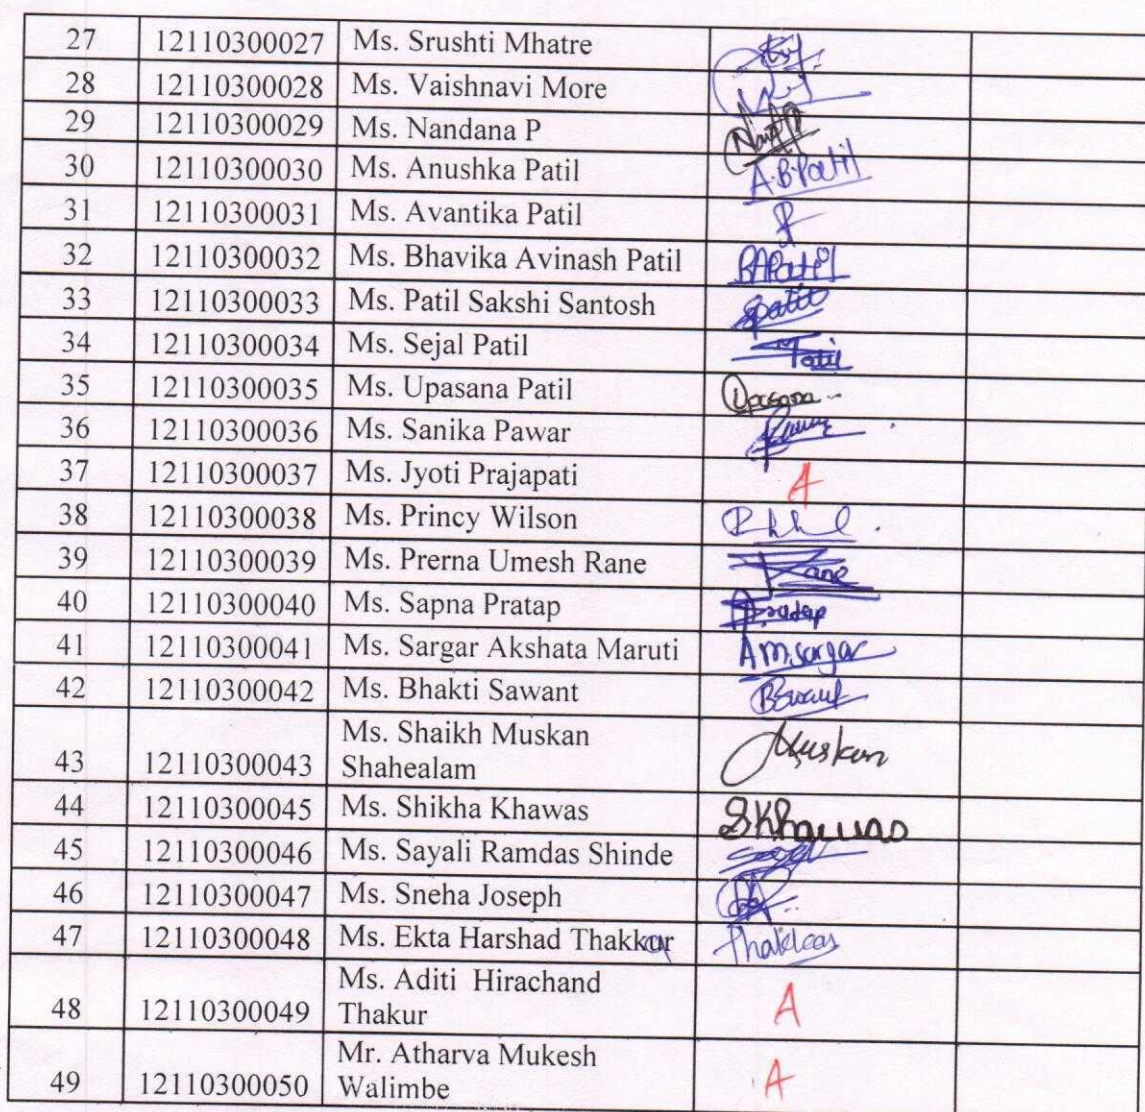 27 12110300027 Ms. Srushti Mhatre
28 12110300028 Ms. Vaishnavi More
29 12110300029 Ms. Nandana P
30 12110300030 Ms. Anushka Patil A.B.Patil
31 12110300031 Ms. Avantika Patil
32 12110300032 Ms. Bhavika Avinash Patil BAPatil
33 12110300033 Ms. Patil Sakshi Santosh Spatil
34 12110300034 Ms. Sejal Patil Patil
35 12110300035 Ms. Upasana Patil Upasana
36 12110300036 Ms. Sanika Pawar
37 12110300037 Ms. Jyoti Prajapati A
38 12110300038 Ms. Princy Wilson
39 12110300039 Ms. Prerna Umesh Rane Rane
40 12110300040 Ms. Sapna Pratap
41 12110300041 Ms. Sargar Akshata Maruti AMsargar
42 12110300042 Ms. Bhakti Sawant
Ms. Shaikh Muskan
43 12110300043 Shahealam Muskan
44 12110300045 Ms. Shikha Khawas SKhawas
45 12110300046 Ms. Sayali Ramdas Shinde
46 12110300047 Ms. Sneha Joseph
47 12110300048 Ms. Ekta Harshad Thakkar
Ms. Aditi Hirachand
48 12110300049 Thakur A
Mr. Atharva Mukesh
49 12110300050 Walimbe A